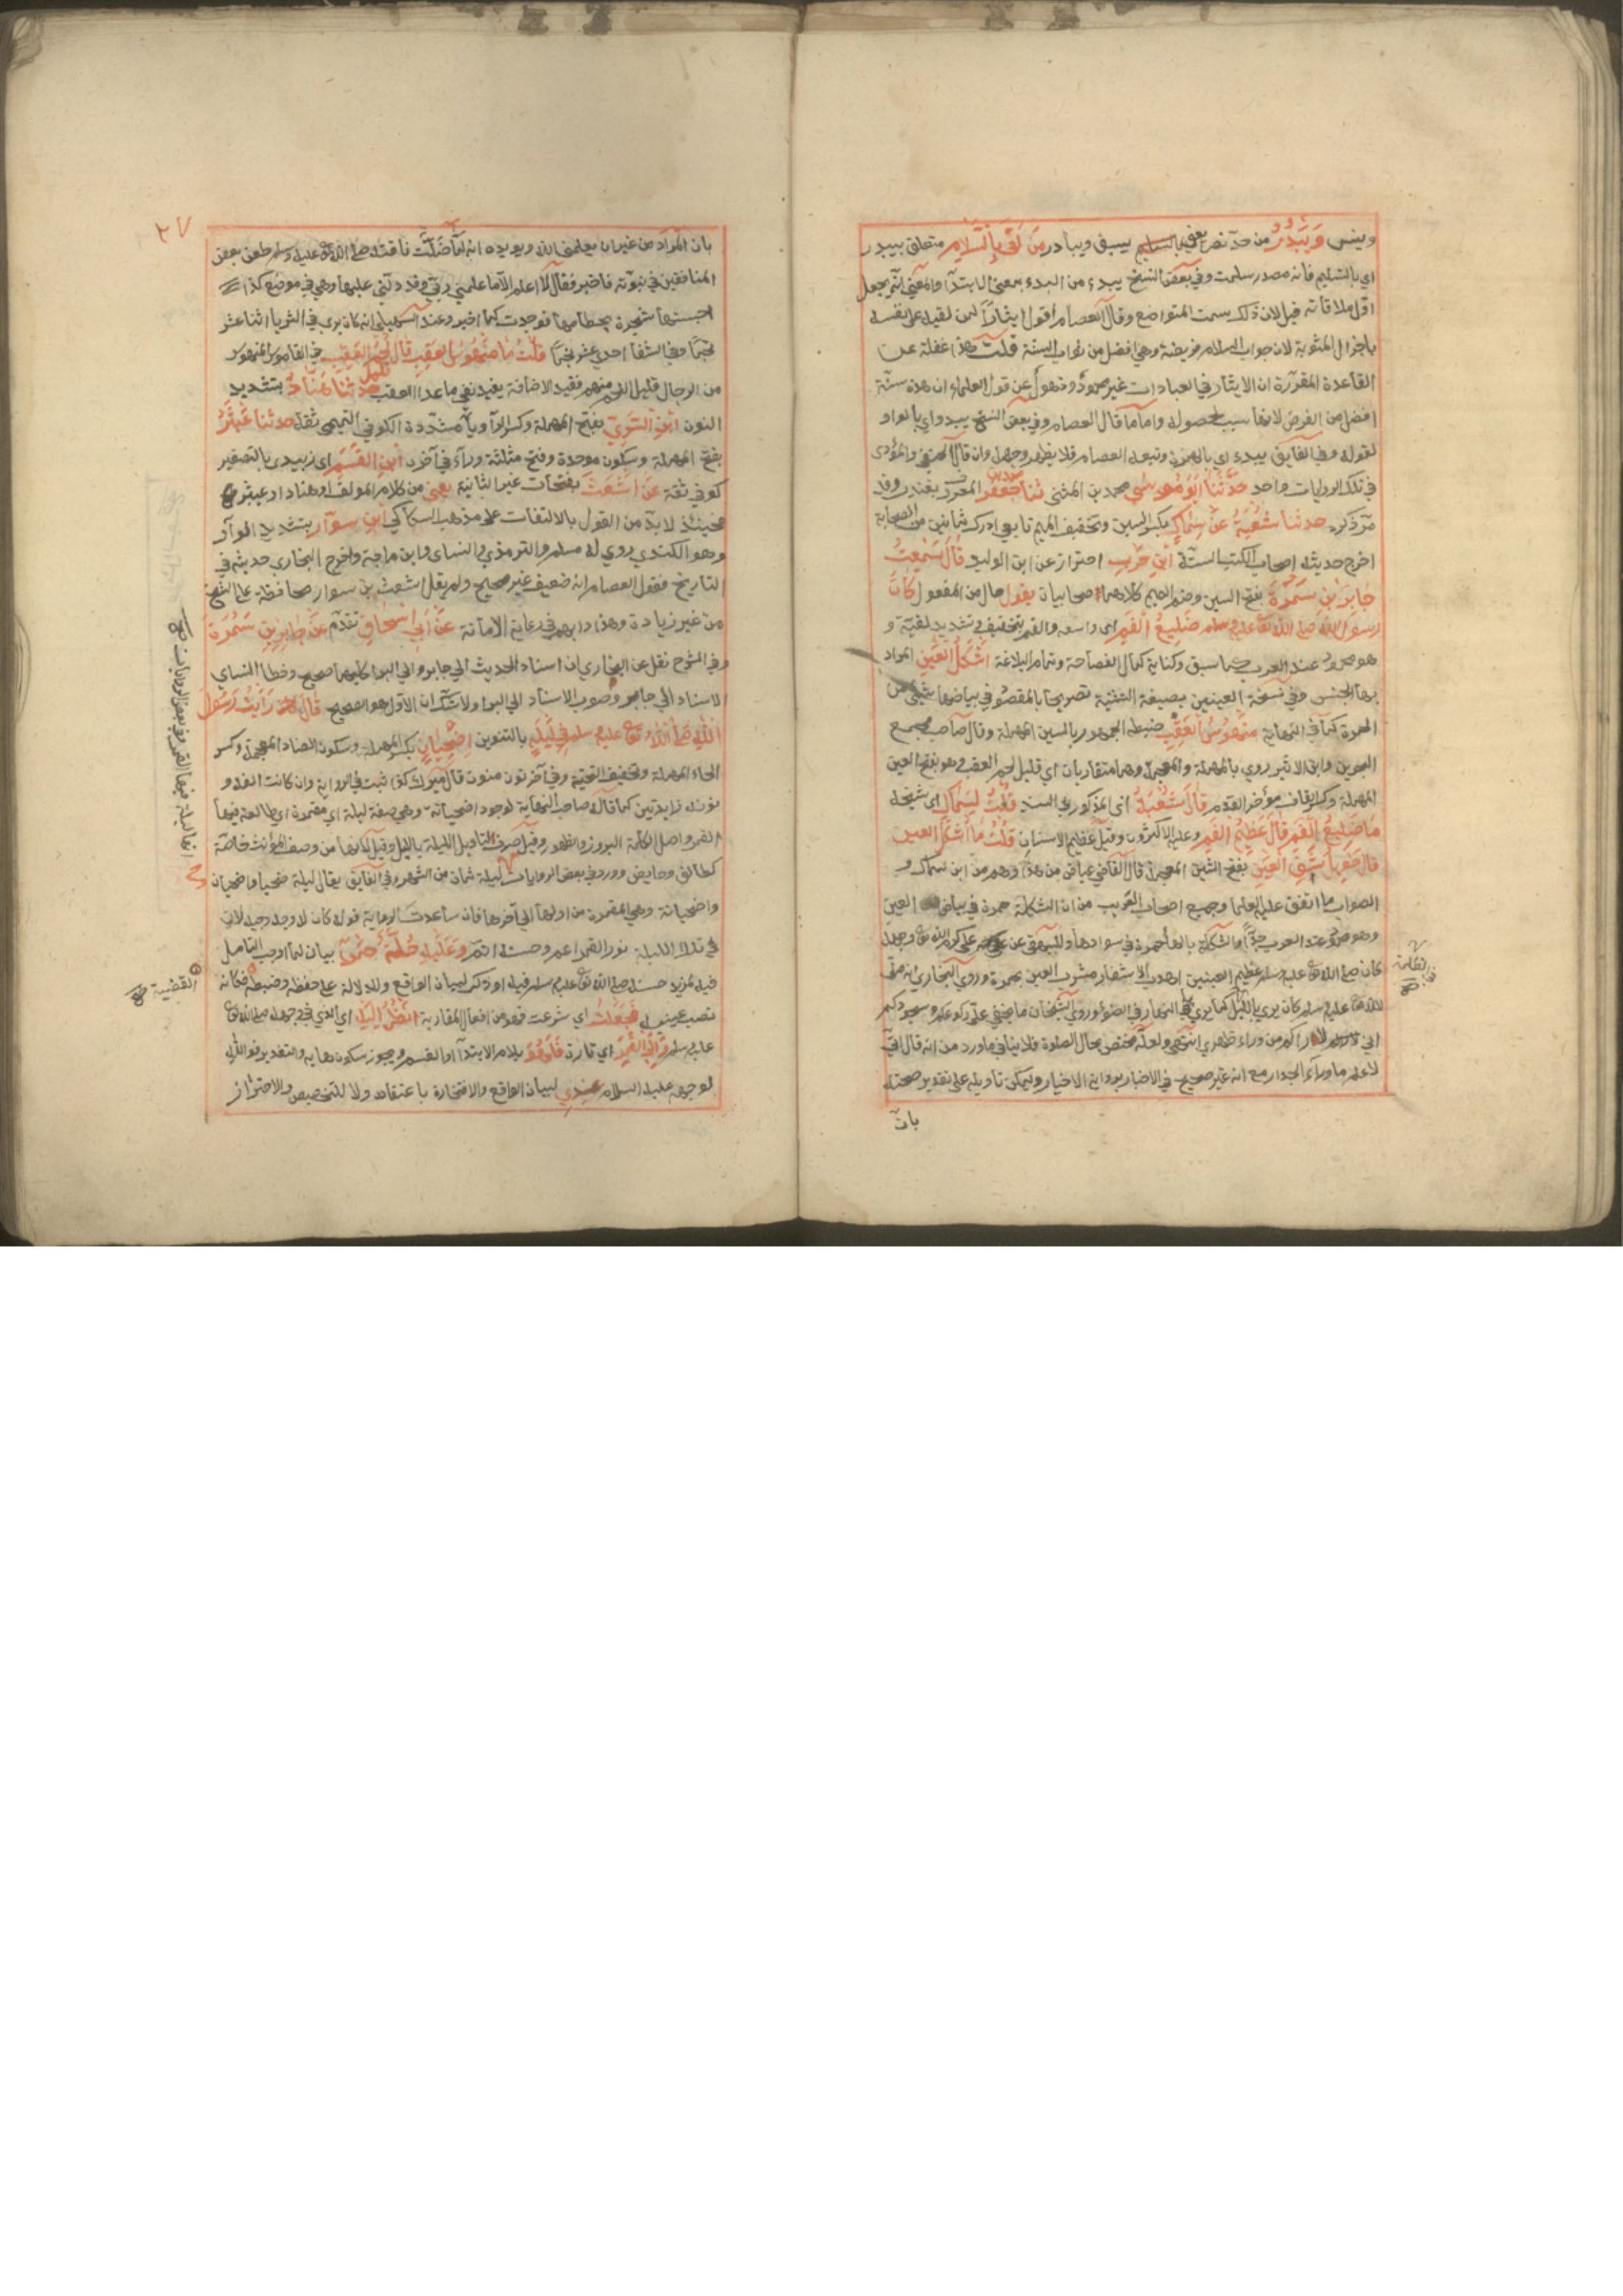 وينسى وَيَبْدُرُ من حد نصر يعني بالتسليم يسبق ويبادر مَن لَقِيَ بِالسَّلَامِ متعلق بيبدر
اي بالتسليم فانه مصدر سلمت وفي بعض النسخ يبدء من البدء بمعنى الابتدآ والمعنى انه يجعل
اول ملاقاته قيل لان ذلك سمت المتواضع وقال العصام اقول ايثاراً لمن لقيه على نفسه
باجزال المثوبة لان جواب السلام فريضة وهي افضل من ثواب السنة قلت هذا غفلة عن
القاعدة المقررة ان الايثار في العبادات غير محمود وذهول عن قول العلماء ان هذه سنة
افضل من الفرض لانها سبب لحصوله واما ما قال العصام وفي بعض النسخ يبدو اي بالواو
لقوله وفي الفايق يبدء اي بالهمزة وتبعه العصام فلا يظهر وجهه وان قال الحنفي والمؤدى
في تلك الروايات واحد حَدَّثَنَا اَبُو مُوسٰى محمد بن المثنى ثنا محمد بن جعفر المعروف بغندر وقد
مر ذكره حدثنا شُعْبَةُ عَنْ سِمَاكِ بكسر السين وتخفيف الميم تابعي ادرك ثمانين من الصحابة
اخرج حديثه اصحاب الكتب الستة ابْنِ حَرْبٍ احتراز عن ابن الوليد قَالَ سَمِعْتُ
جَابِرَ بْنَ سَمُرَةَ بفتح السين وضم الميم كلاهما صحابيان يقول حال من المفعول كَانَ
رسول الله صلى الله تع عليه وسلم ضَلِيعَ الْفَمِ اي واسعه والفم بتخفيف وتشديد لغية و
هو محمود عند العرب كما سبق وكناية كمال الفصاحة وتمام البلاغة اَشْكَلَ الْعَيْنِ المراد
بها الجنس وفي نسخة العينين بصيغة التثنية تصريحا بالمقصود في بياضها شيء من
الحمرة كما في النهاية مَنْهُوسَ الْعَقِبِ ضبطه الجمهور بالسين المهملة وقال صاحب مجمع
البحرين وابن الاثير روي بالمهملة والمعجمة وهما متقاربان اي قليل لحم العقب وهو بفتح العين
المهملة وكسر القاف مؤخر القدم قَالَ شُعْبَةُ اي المذكور في السند قُلْتُ لِسِمَاكٍ اي شيخه
مَا ضَلِيعُ الْفَمِ قَالَ عَظِيْمُ الْفَمِ وعليه الاكثرون وقيل عظيم الاسنان قُلْتُ مَا اَشْكَلُ العين
قال طَوِيلُ شَقِّ الْعَيْنِ بفتح الشين المعجمة قال القاضي عياض من هذا وهم من ابن سماك و
الصواب ما اتفق عليه العلما وجميع اصحاب الغريب من ان الشكلة حمرة في بياض العين
وهو محمود عند العرب جداً والشكلة بالهاء حمرة في سوادها وللبيهقي عن علي كرم الله تع وجهه
كان صلى الله تع عليه وسلم عظيم العينين اهدب الاشفار مشرب العين بحمرة وروى البخاري انه صلى
الله تع عليه وسلم كان يرى بالليل كما يرى في النهار في الضوء وروى الشيخان ما يخفى علي ركوعكم وسجودكم
اني لاراكم من وراء ظهري انتهى ولعله مختص بحال الصلوة فلا ينافي ما ورد من انه قال اني
لاعلم ما ورآء الجدار مع انه غير صحيح في الاخبار برواية الاخيار ويمكن تاويله على تقدير صحته
بان
في الظلمة
صح
٢٧
بان المراد من غير ان يعلمني الله ويؤيده انه لما ضلت ناقته صلى الله تع عليه وسلم طعن بعض
المنافقين في نبوته فاخبر فقال لا اعلم الا ما علمني ربي وقد دلني عليها وهي في موضع كذا
حبستها شجرة بخطامها فوجدت كما اخبر وعند السهيلي انه كان يرى في الثريا اثنا عشر
نجما وفي الشفا احدى عشر نجما قُلْتُ مَا مَنْهُوسُ العقِبِ قال قليل لَحْمِ العَقِبِ في القاموس المنهوس
من الرجال قليل اللحم منهم فقيد الاضافة يفيد نفي ما عدا العقب حدثنا هَنَّادُ بتشديد
النون ابْنُ السَّرِيِّ بفتح المهملة وكسر الرآ وياء مشددة الكوفي التميمي ثقة حدثنا عَبْثَرُ
بفتح المهملة وسكون موحدة وفتح مثلثة ورآء في آخره ابْنُ القَسِمِ اي زبيدي بالتصغير
كوفي ثقة عَنْ اَشْعَثَ بفتحات غير الثانية يعني من كلام المولف او هناد او عبثر
فحينئذ لا بد من القول بالالتفات على مذهب السكاكي ابْنِ سوّار بتشديد الواو
وهو الكندي روى له مسلم والترمذي والنساي وابن ماجة واخرج البخاري حديثه في
التاريخ فقول العصام انه ضعيف غير صحيح ولم يقل اشعث بن سوار محافظة على الشيخ
من غير زيادة وهذا دابهم في رعاية الامانة عَنْ اَبِي اِسْحَاقَ تقدم عَنْ جَابِرِ بْنِ سَمُرَةَ
وفي الشرح نقل عن البخاري ان اسناد الحديث الى جابر والى البرا كليهما صحيح وخطا النساي
الاسناد الى جابر وصوب الاسناد الى البرا ولا شك ان الاول هو الصحيح قَالَ رَاَيْتُ رَسُولَ
اللّٰهِ صَلَّى اللّٰهُ تع عليه وسلم فِي لَيْلَةٍ بالتنوين اِضْحِيَانٍ بكسر الهمزة وسكون الضاد المعجمة وكسر
الحاء المهملة وتخفيف التحتية وفي آخره نون منون قال ميرك كذا ثبت في الرواية وان كانت الفه و
نونه زايدتين كما قاله صاحب النهاية لوجود اضحيانة وهي صفة ليلة اي مقمرة اي طالعة فيها
القمر واصل الكلمة البروز والظهور وقيل صرف لتاويل الليلة بالليل وقيل لانها من وصف المؤنث خاصة
كطالق وحايض وورد في بعض الروايات ليلة ثمان من الشهر وفي الفايق يقال ليلة ضحيا واضحيان
واضحيانة وهي المقمرة من اولها الى آخرها فان ساعدت الرواية قوله كان له وجه وجيه لان
في تلك الليلة نور القمر اعم وحسنه اتم وَعَلَيْهِ حُلَّةٌ حَمْرَآ بيان لما اوجب التامل
فيه لمزيد حسنه صلى الله تع عليه وسلم فيه او ذكر لبيان الواقع وللدلالة على حفظه وضبطه فكانه
نصب عينه فَجَعَلْتُ اي شرعت فهو من افعال المقاربة اَنْظُرُ اِلَيْهِ اي الذي في وجهه صلى الله تع
عليه وسلم وَاِلَى الْقَمَرِ اي تارة فَلَهُوَ بلام الابتدآ او القسم ويجوز سكون هايه والتقدير فوالله
لوجهه عليه السلام عِنْدِي لبيان الواقع والافتخار باعتقاده ولا للتخصيص والاحتراز
القضية صح